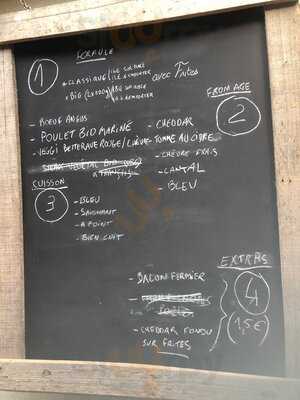 FORMULE
1
- CLASSIQUE / SUR PLACE
À EMPORTER
AVEC FRITES
- BIG
SUR PLACE
À EMPORTER
- BOEUF ANGUS
- POULET BIO MARINÉ
- VEGGI BETTERAVE ROUGE / CHÈVRE
FROMAGE
2
- CHEDDAR
- TOMME AU CIDRE
- CHÈVRE FRAIS
- CANTAL
- BLEU
CUISSON
3
- BLEU
- SAIGNANT
- A POINT
- BIEN CUIT
EXTRAS
4
(1,5€)
- BACON FERMIER
- CHEDDAR FONDU
SUR FRITES